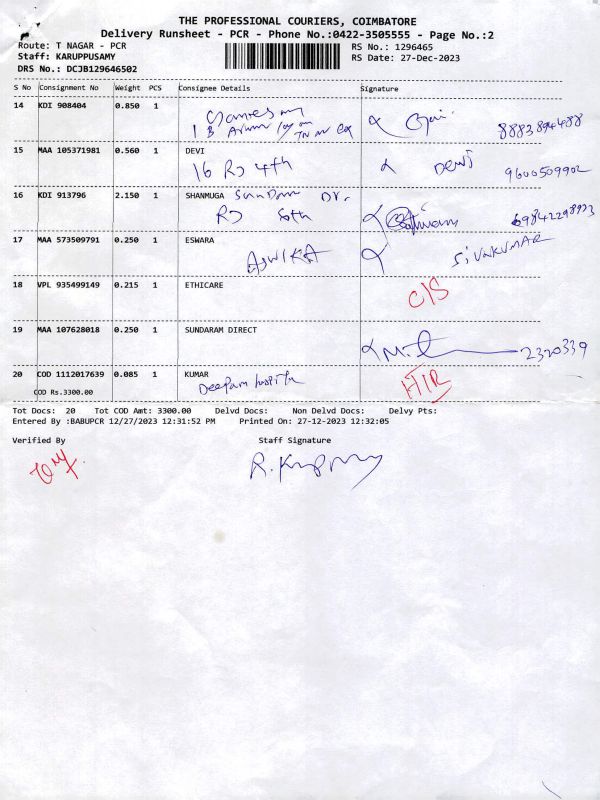 THE PROFESSIONAL COURIERS, COIMBATORE
Delivery Runsheet - PCR - Phone No.:0422-3505555 - Page No.:2
Route: T NAGAR - PCR RS No.: 1296465
Staff: KARUPPUSAMY RS Date: 27-Dec-2023
DRS No.: DCJB129646502
S No Consignment No Weight PCS Consignee Details Signature
14 KDI 908404 0.850 1
1 B
15 MAA 105371981 0.560 1 DEVI
16 RJ 4th DEWI 9600509902
16 KDI 913796 2.150 1 SHANMUGA Sundar Dr.
17 MAA 573509791 0.250 1 ESWARA
ASWIKA SIVAKUMAR
18 VPL 935499149 0.215 1 ETHICARE
C/S
19 MAA 107628018 0.250 1 SUNDARAM DIRECT
2320339
20 COD 1112017639 0.085 1 KUMAR
Deepam
COD Rs.3300.00
Tot Docs: 20 Tot COD Amt: 3300.00 Delvd Docs: Non Delvd Docs: Delvy Pts:
Entered By :BABUPCR 12/27/2023 12:31:52 PM Printed On: 27-12-2023 12:32:05
Verified By Staff Signature